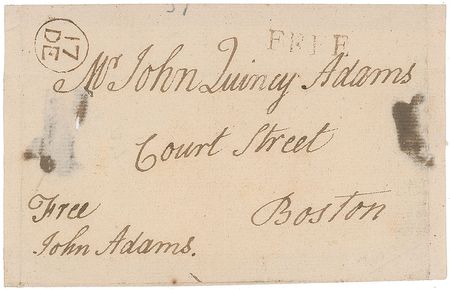 17
DE
FREE
Mr John Quincy Adams
Court Street
Boston
Free
John Adams.